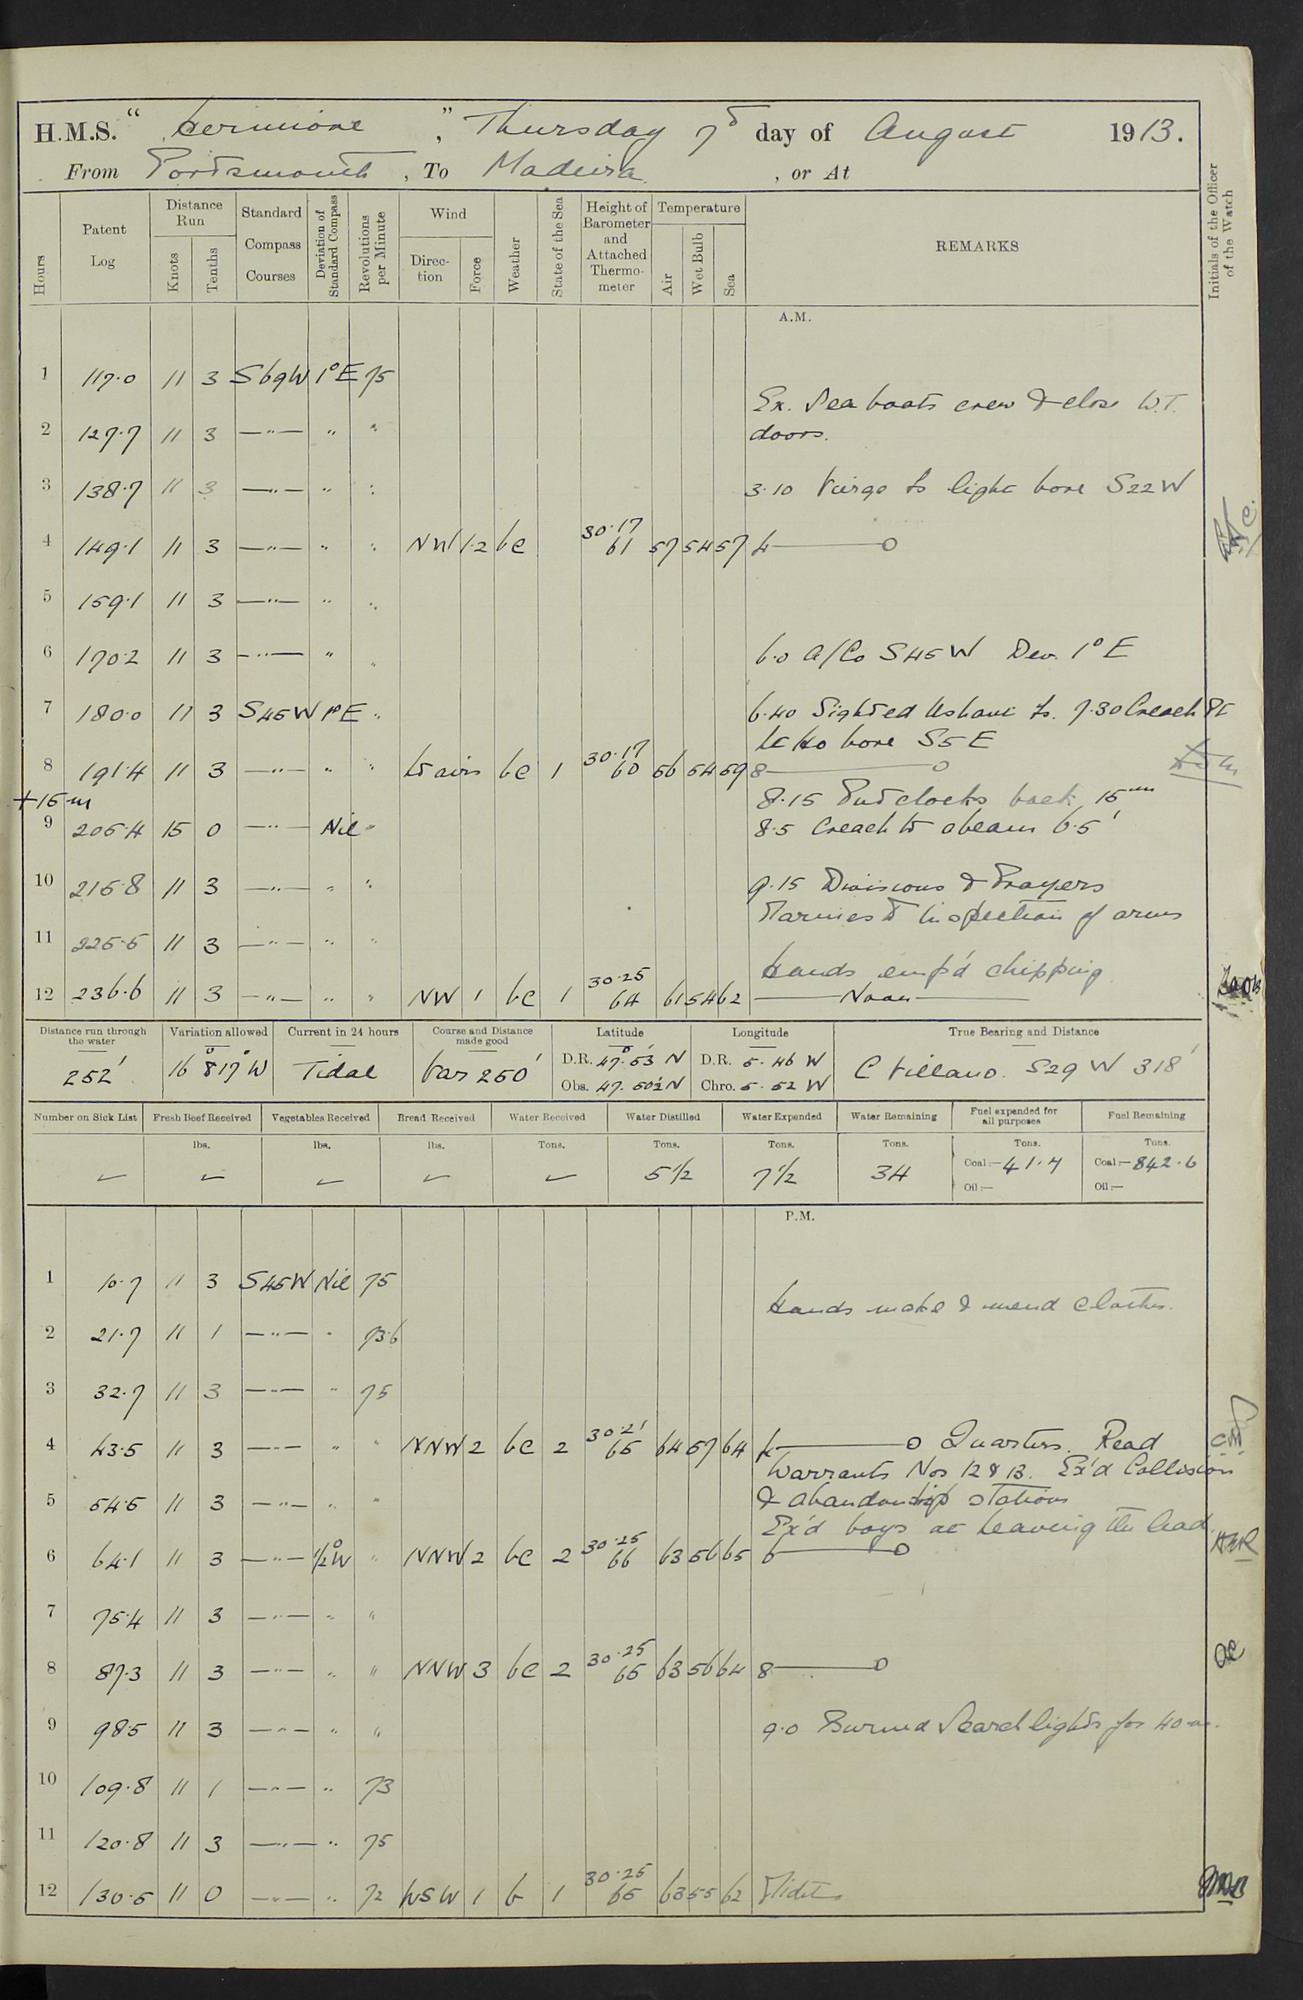 H.M.S. "Hermione", Thursday 7th day of August 1913.
From Portsmouth, To Madeira, or At
Hours Patent Log Distance Run Knots Tenths Standard Compass Courses Deviation of Standard Compass Revolutions per Minute Wind Direction Force Weather State of the Sea Height of Barometer and Attached Thermometer Temperature Air Wet Bulb Sea REMARKS Initials of the Officer of the Watch
A.M.
1 117.0 11 3 S69W 1°E 75
Ex. Sea boats crew & close W.T.
2 127.7 11 3 —"— " " doors.
3 138.7 11 3 —"— " " 3.10 Vierge Is light bore S22W
4 149.1 11 3 —"— " " NW 1.2 bc 30.17 61 57 54 57 4———o
5 159.1 11 3 —"— " "
6 170.2 11 3 —"— " " 6.0 A/Co S45W Dev. 1°E
7 180.0 11 3 S45W 1°E " 6.40 Sighted Ushant Is. 7.30 Creach Pt
Lt Ho bore S5E
8 191.4 11 3 —"— " " Lt airs bc 1 30.17 60 56 54 59 8———o
+15m 8.15 Put clocks back 15m
9 205.4 15 0 —"— Nil " 8.5 Creach Lt abeam 6.5'
10 215.8 11 3 —"— " " 9.15 Divisions & Prayers
Marines to inspection of arms
11 225.5 11 3 —"— " "
Hands emp'd chipping
12 236.6 11 3 —"— " " NW 1 bc 1 30.25 64 61 54 62 ——Noon——
Distance run through the water Variation allowed Current in 24 hours Course and Distance made good Latitude Longitude True Bearing and Distance
252' 16° 817° W Tidal Var 250' D.R. 47° 53 N D.R. 5. 46 W C Villano. S29W 318'
Obs. 47. 50½ N Chro. 5. 52 W
Number on Sick List Fresh Beef Received Vegetables Received Bread Received Water Received Water Distilled Water Expended Water Remaining Fuel expended for all purposes Fuel Remaining
lbs. lbs. lbs. Tons. Tons. Tons. Tons. Tons. Tons.
5½ 7½ 34 Coal:— 41.7 Coal:— 842.6
Oil:— Oil:—
P.M.
1 10.7 11 3 S45W Nil 75
Hands make & mend clothes.
2 21.7 11 1 —"— " 73.6
3 32.7 11 3 —"— " 75
4 43.5 11 3 —"— " " NNW 2 bc 2 30.21 65 64 57 64 4———o Quarters. Read
Warrants Nos 12 & 13. Ex'd Collision
5 54.5 11 3 —"— " " & abandon ship stations
Ex'd boys at heaving the lead
6 64.1 11 3 —"— ½°W " NNW 2 bc 2 30.25 66 63 56 65 6———o
7 75.4 11 3 —"— " "
8 87.3 11 3 —"— " " NNW 3 bc 2 30.25 65 63 56 64 8———o
9 98.5 11 3 —"— " " 9.0 Burned Searchlights for 40m.
10 109.8 11 1 —"— " 73
11 120.8 11 3 —"— " 75
12 130.5 11 0 —"— " 72 WSW 1 b 1 30.25 65 63 55 62 Midt